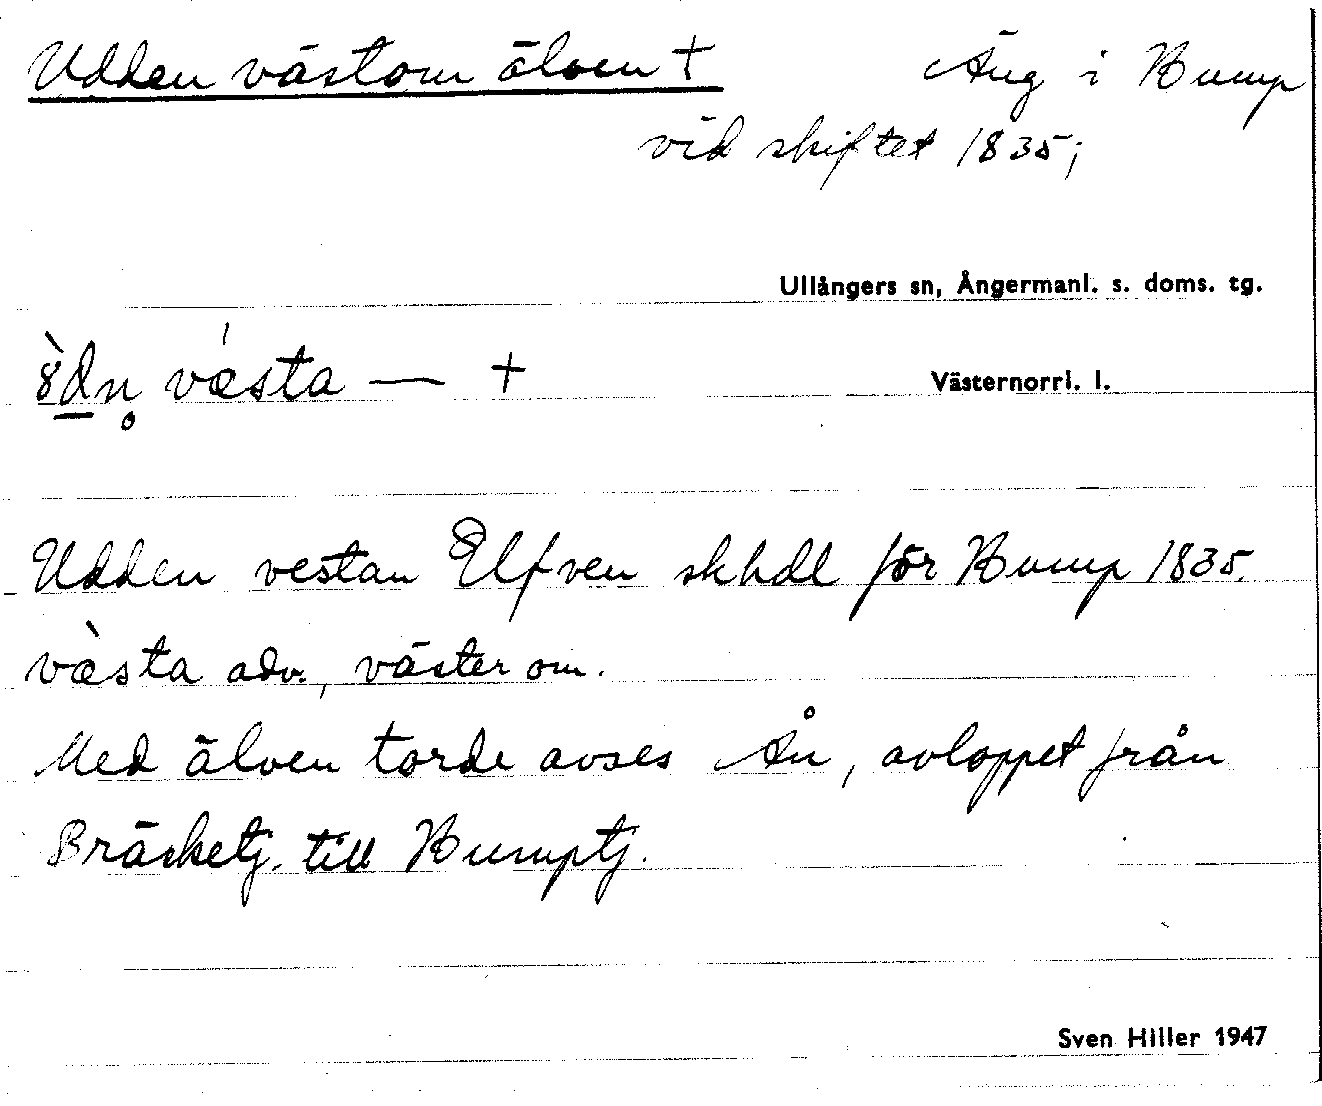 Udden västom älven +
Äng i Bump
vid skiftet 1835;
Ullångers sn, Ångermanl. s. doms. tg.
västa — +
Västernorrl. l.
Udden vestan Elfven skhdl för Bump 1835.
västa adv., väster om.
Med älven torde avses Ån, avloppet från
Bräsketj. till Bumptj.
Sven Hiller 1947